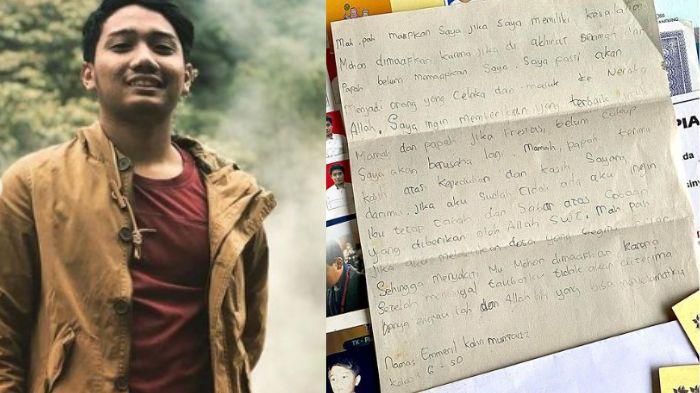 Mah, pah maapkan saya jika saya memiliki kesalahan
Mohon dimaafkan karena jika di akhirat
Papah belum memaafkan saya. Saya pasti akan
menjadi orang yang celaka dan masuk ke Neraka
Allah. Saya ingin memberikan yang terbaik untuk
Mamah dan papah jika Prestasi belum cukup
Saya akan berusaha lagi. Mamah, papah terima
kasih atas kepedulian dan kasih Sayang
darimu. Jika aku sudah tidak ada aku ingin
ibu tetap tabah dan Sabar atas Cobaan
yang diberikan oleh Allah SWT. Mah pah
Jika aku dosa yang
Sehingga menyakiti Mu Mohon dimaafkan karena
Setelah meninggal taubatku tidak akan diterima
hanya engkau lah dan Allah lah yang bisa menyelamatku
Nama: Emmeril kahn mumtadz
Kelas: 6 - SD
PIA
TK - P